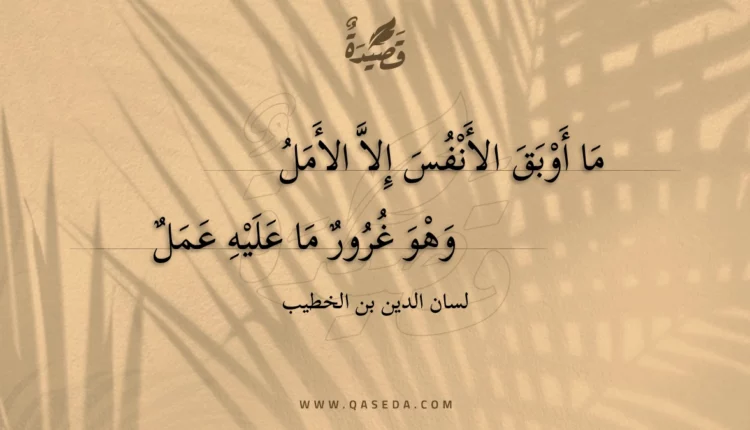 قَصِيْدَةٌ
مَا أَوْبَقَ الأَنْفُسَ إِلاَّ الأَمَلُ
وَهْوَ غُرُورٌ مَا عَلَيْهِ عَمَلٌ
لسان الدين بن الخطيب
WWW.QASEDA.COM